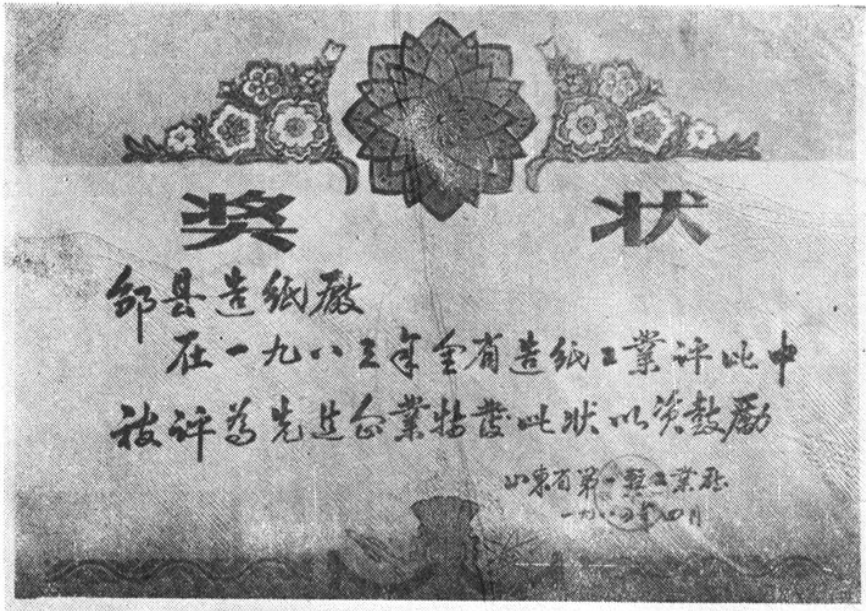 奖 状
邹县造纸廠
在一九八三年全省造纸工業评比中
被评為先进企業特發此状以资鼓励
山東省第一輕工業厅
一九八四年四月